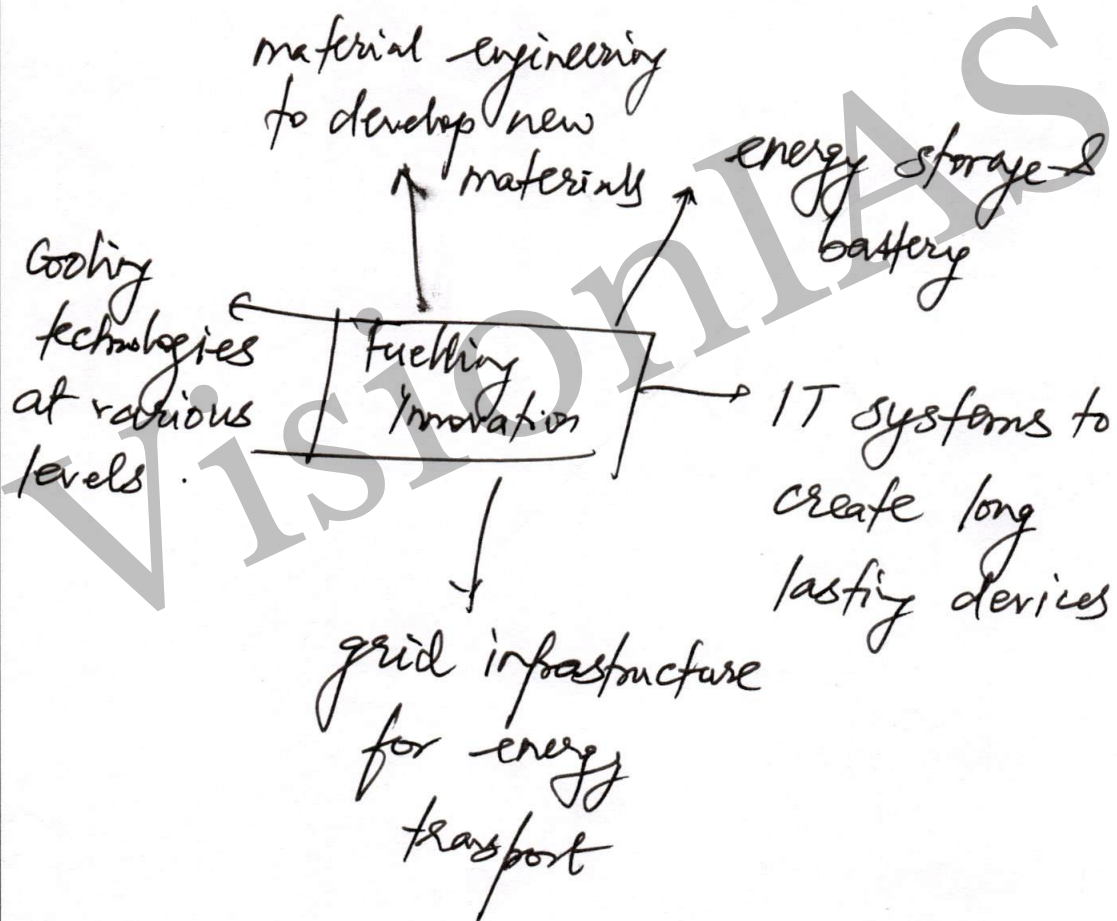 material engineering
to develop new
materials
energy storage &
battery
Cooling
technologies
at various
levels.
Fuelling
Innovation
IT systems to
create long
lasting devices
grid infrastructure
for energy
transport
VisionIAS